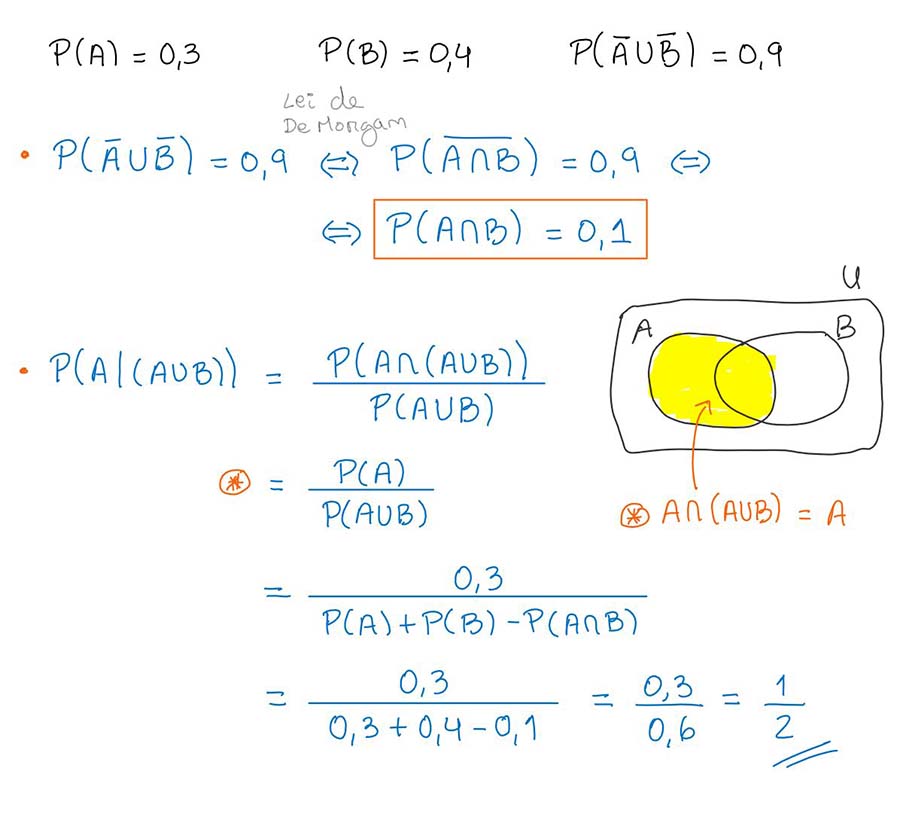 P(A) = 0,3 P(B) = 0,4 P(Ā∪B̄) = 0,9
Lei de
De Morgam
• P(Ā∪B̄) = 0,9 ⇔ P(A̅∩̅B̅) = 0,9 ⇔
⇔ P(A∩B) = 0,1
U
A B
• P(A|(A∪B)) = P(A∩(A∪B)) / P(A∪B)
⊛ = P(A) / P(A∪B)
⊛ A∩(A∪B) = A
= 0,3 / P(A)+P(B)-P(A∩B)
= 0,3 / 0,3+0,4-0,1 = 0,3 / 0,6 = 1 / 2